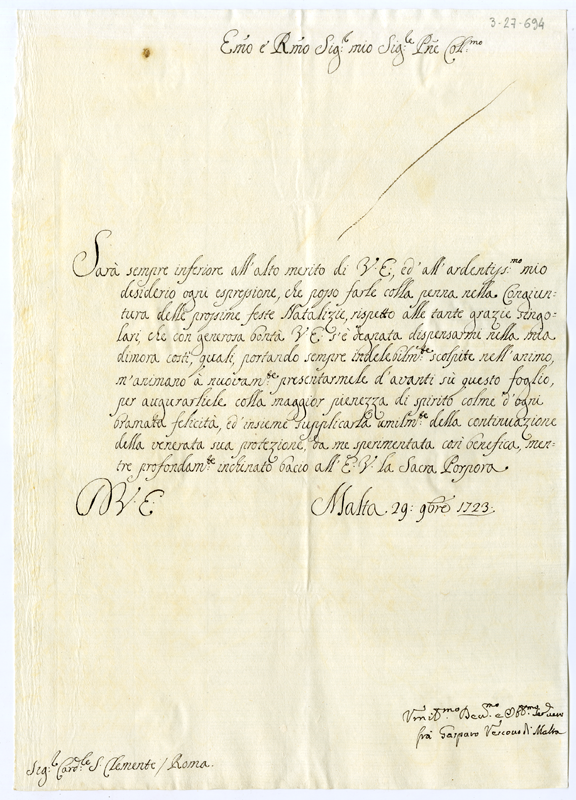 3-27-694
Em̃o e Rm̃o Sig.r mio Sig.le Pñe Coll.mo
Sarà sempre inferiore all'alto merito di V. E:, ed' all'ardentiss:mo mio
desiderio ogni espressione, che posso farle colla penna nella Congiun-
tura delle prossime feste Natalizie, rispetto alle tante grazie singo-
lari, che con generosa bontà V. E: s'è degnata dispensarmi nella mia
dimora costì, quali, portando sempre indelebilm:te scolpite nell'animo,
m'animano à nuovam:te presentarmele d'avanti sù questo foglio,
per augurarliele colla maggior pienezza di spirito colme d'ogni
bramata felicità, ed insieme supplicarla umilm:te della continuazione
della venerata sua protezione, da me sperimentata così benefica, men-
tre profondam:te inchinato bacio all'E: V. la Sacra Porpora
D V. E:
Malta 29: 9bre 1723:
Um̃il.mo Dev.mo e Obb.mo Servo
frà Gasparo Vescovo di Malta
Sig.r Card.le S. Clemente / Roma.